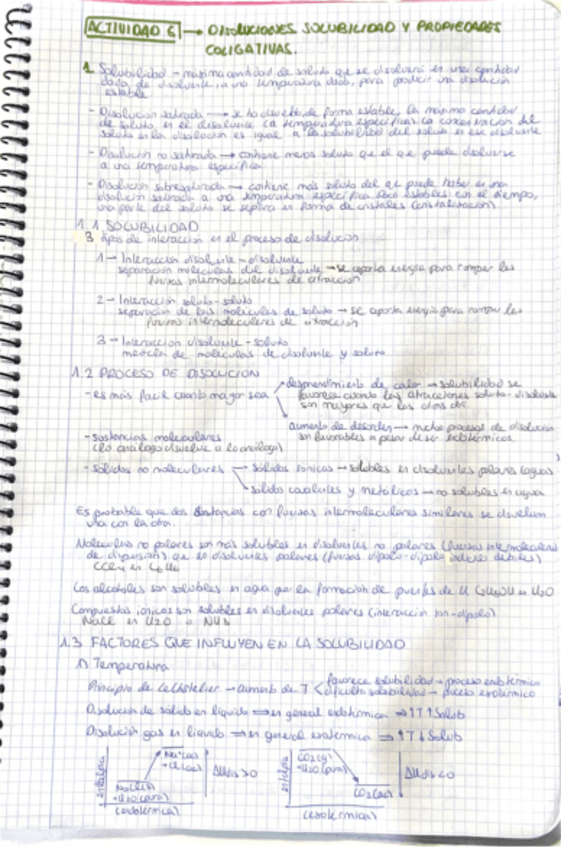 ACTIVIDAD 6 → DISOLUCIONES SOLUBILIDAD Y PROPIEDADES
COLIGATIVAS.
1. Solubilidad – máxima cantidad de soluto que se disolverá en una cantidad
dada de disolvente, a una temperatura dada, para producir una disolución
estable
- Disolución saturada → se ha disuelto de forma estable, la máxima cantidad
de soluto en el disolvente (a temperatura específica). La concentración del
soluto en la disolución es igual a la solubilidad del soluto en ese disolvente
- Disolución no saturada → contiene menos soluto que el que puede disolverse
a una temperatura específica
- Disolución sobresaturada → contiene más soluto del que puede haber en una
disolución saturada a una temperatura específica. Poco estables con el tiempo,
una parte del soluto se separa en forma de cristales (cristalización)
1.1 SOLUBILIDAD
3 tipos de interacción en el proceso de disolución
1 – Interacción disolvente – disolvente
separación moléculas del disolvente → se aporta energía para romper las
fuerzas intermoleculares de atracción
2 – Interacción soluto – soluto
separación de las moléculas de soluto → se aporta energía para romper las
fuerzas intermoleculares de atracción
3 – Interacción disolvente – soluto
mezcla de moléculas de disolvente y soluto
1.2 PROCESO DE DISOLUCION
- es más fácil cuanto mayor sea
desprendimiento de calor → solubilidad se
favorece cuando las atracciones soluto-disolvente
son mayores que las otras dos
aumento de desorden → muchos procesos de disolución
son favorables a pesar de ser endotérmicos.
- sustancias moleculares
(lo análogo disuelve a lo análogo)
- sólidos no moleculares
sólidos iónicos → solubles en disolventes polares (agua)
sólidos covalentes y metálicos → no solubles en agua
Es probable que dos sustancias con fuerzas intermoleculares similares se disuelvan
una con la otra.
Moléculas no polares son más solubles en disolventes no polares (fuerzas intermoleculares
de dispersión) que en disolventes polares (fuerzas dipolo-dipolo débiles)
CCl4 en C6H6
Los alcoholes son solubles en agua por la formación de puentes de H C2H5OH en H2O
Compuestos iónicos son solubles en disolventes polares (interacción ion-dipolo)
NaCl en H2O o NH3
1.3 FACTORES QUE INFLUYEN EN LA SOLUBILIDAD
1) Temperatura
Principio de Le Chatelier → aumento de T
favorece solubilidad → proceso endotérmico
dificulta solubilidad → proceso exotérmico
Disolución de sólido en líquido ⟹ en general endotérmica ⟹ ↑T ↑ Solub
Disolución gas en líquido ⟹ en general exotérmica ⟹ ↑T ↓ Solub
entalpia
Na+(ac)
+ Cl-(ac)
NaCl(s)
+ H2O (pura)
ΔHdis > 0
(endotérmica)
entalpia
CO2(g)
+ H2O (pura)
CO2(ac)
ΔHdis < 0
(exotérmica)